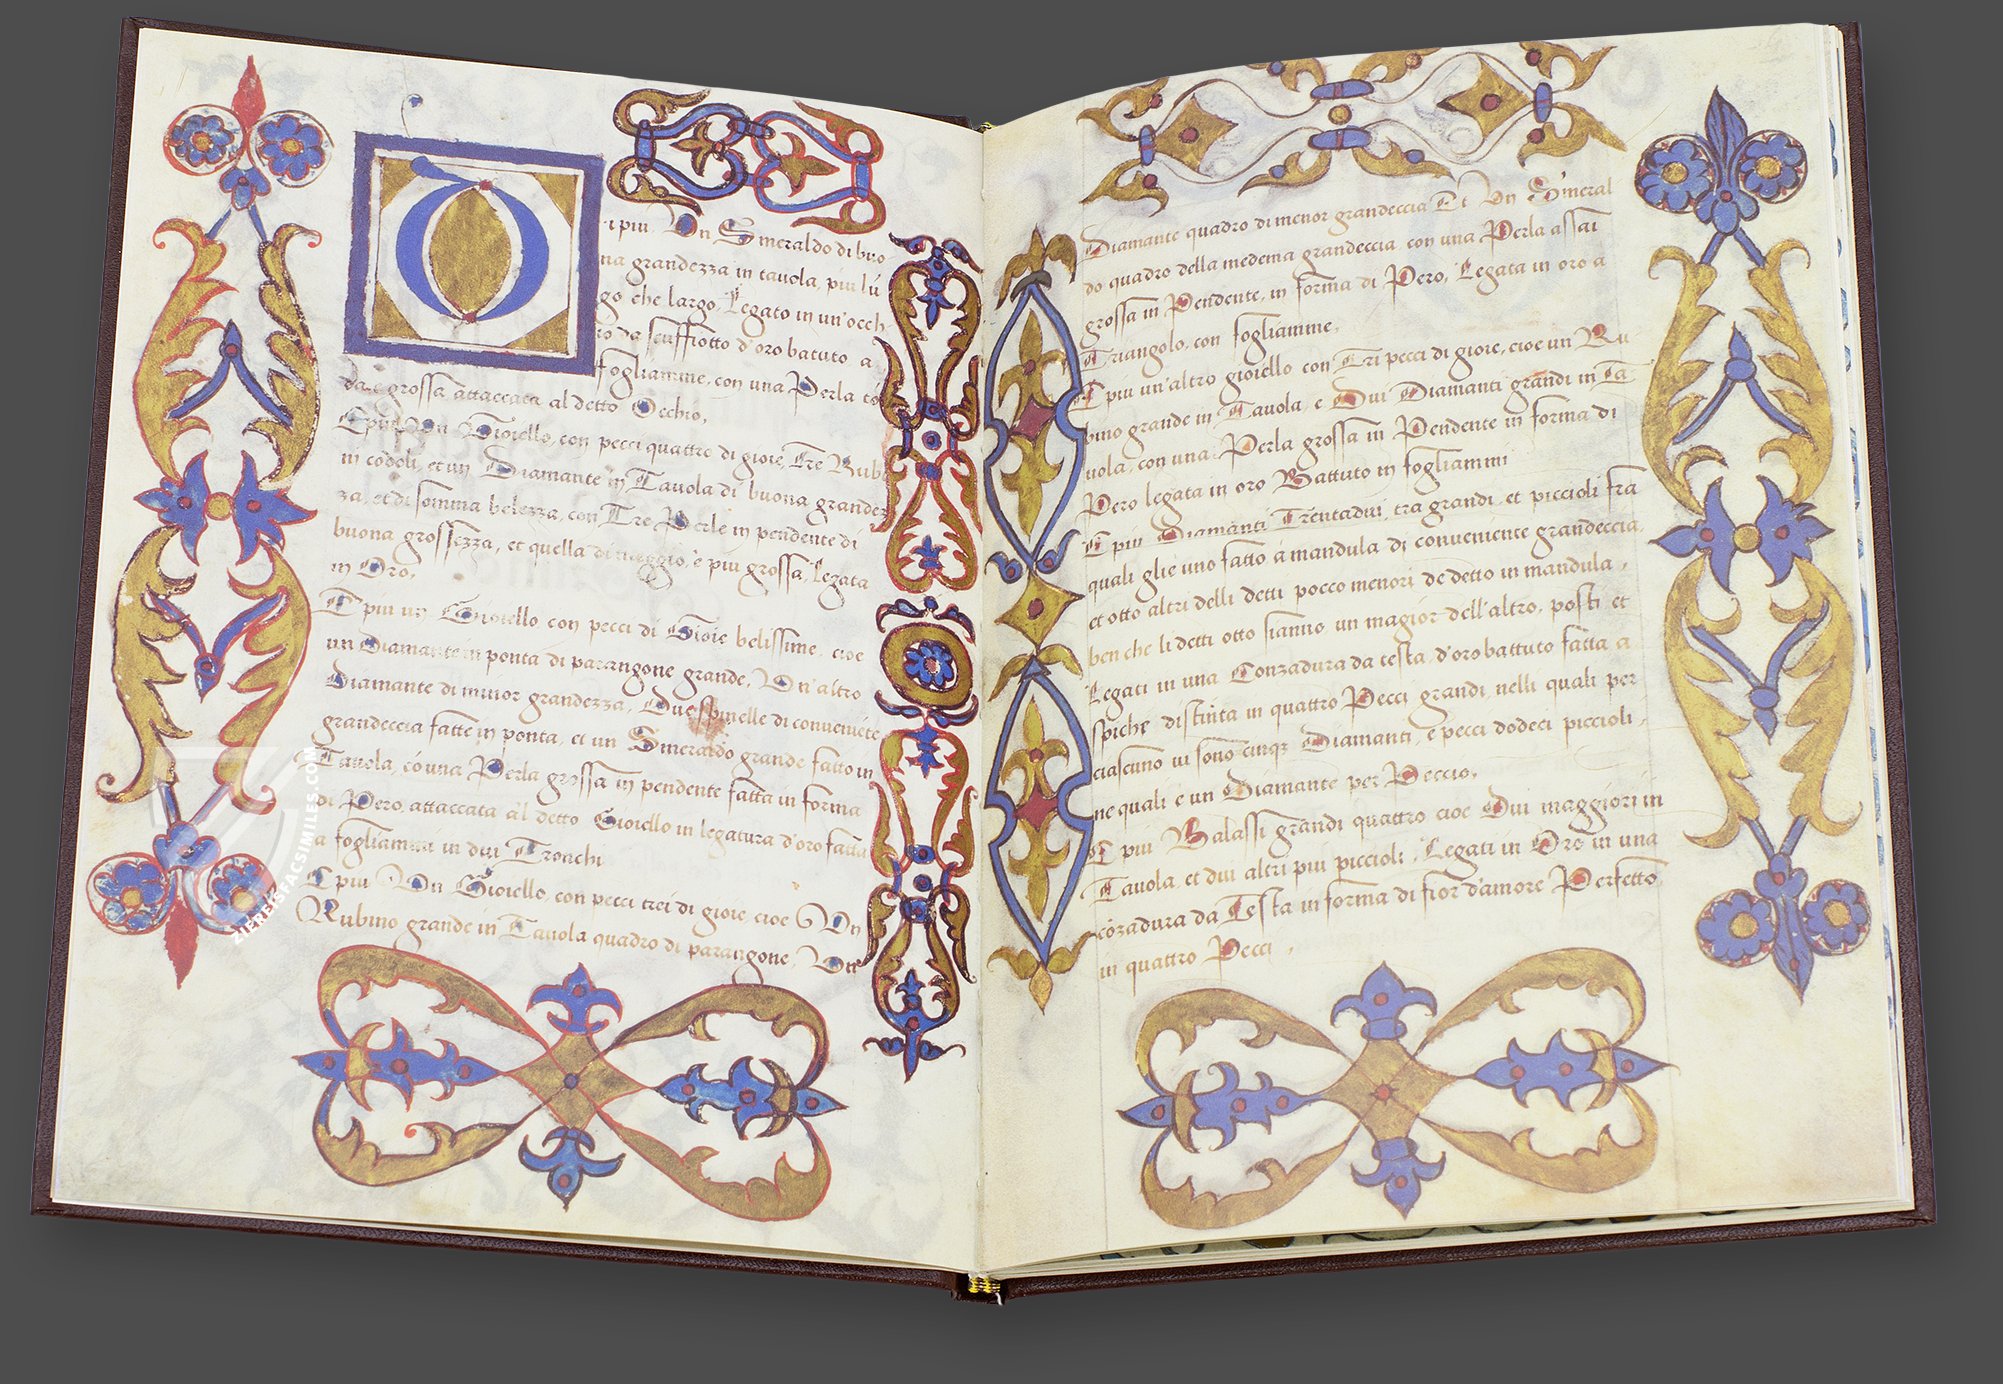 D
i piu. Un Smeraldo di buo
na grandezza in tauola, piu lú
go che largo, Legato in un'occh
io da scuffiotto d'oro batuto a
fogliamme, con una Perla tó
da, e grossa attaccata al detto Occhio,
E piu Un Gioiello, con pecci quattro di gioie, Tre Rub
in codoli, et un Diamante in Tauola di buona grandez
za, et di somma belezza, con Tre Perle in pendente di
buona grossezza, et quella di meggio, è piu grossa, Legata
in Oro,
E piu un Gioiello con pecci di Gioie belissime, cioe
un Diamante in ponta di parangone grande, Un'altro
Diamante di minor grandezza, Due spinelle di conueniete
grandeccia fatte in ponta, et un Smeraldo grande fatto in
Tauola, có una Perla grossa in pendente fatta in forma
di Pero, attaccata al detto Gioiello in legatura d'oro fatta
a fogliamma in dui Tronchi
E piu Un Gioiello, con pecci trei di gioie, cioe Un
Rubino grande in Tauola quadro di parangone, Un
Diamante quadro di menor grandeccia Et Un Smeral
do quadro della medema grandeccia, con una Perla assai
grossa in Pendente, in forma di Pero, Legata in oro a
Triangolo, con fogliamme,
E piu un'altro gioiello con Tri pecci di gioie, cioe un Ru
bino grande in Tauola, e Dui Diamanti grandi in Ta
uola, con una Perla grossa in Pendente in forma di
Pero legata in oro Battuto in fogliammi
E piu Diamanti Trentadui, tra grandi, et piccioli fra
quali glie uno fatto a mandula di conueniente grandeccia,
et otto altri delli detti pocco menori de detto in mandula,
ben che li detti otto sianno un magior dell'altro, posti et
Legati in una Conzadura da testa, d'oro battuto fatta a
spiche distinta in quattro Pecci grandi, nelli quali per
ciascuno ui sono cinqz Diamanti, e pecci dodeci piccioli,
ne quali e un Diamante per Peccio,
E piu Balassi grandi quattro cioe Dui maggiori in
Tauola, et dui altri piu piccioli, Legati in Oro in una
cózadura da Testa in forma di fior d'amore Perfetto,
in quattro Pecci,
ZIEREISFACSIMILES.COM